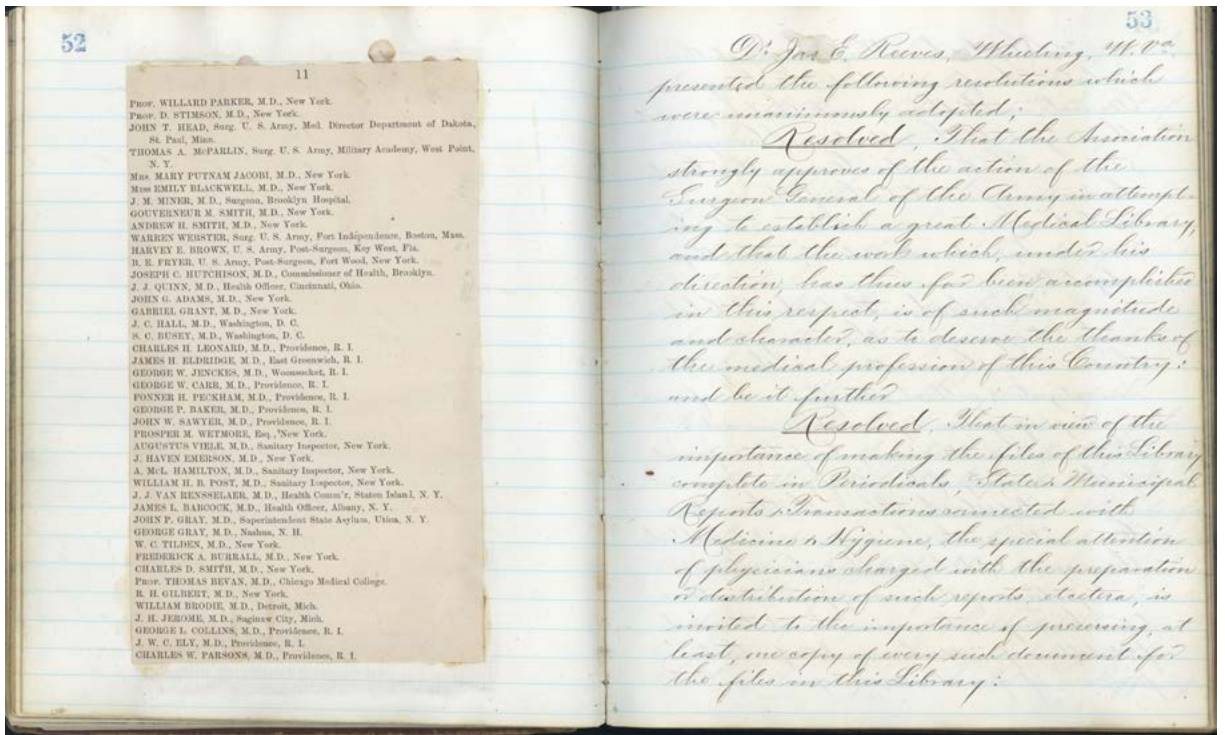 52
11
PROF. WILLARD PARKER, M.D., New York.
PROF. D. STIMSON, M.D., New York.
JOHN T. HEAD, Surg. U. S. Army, Med. Director Department of Dakota,
St. Paul, Minn.
THOMAS A. McPARLIN, Surg. U. S. Army, Military Academy, West Point,
N. Y.
MRS. MARY PUTNAM JACOBI, M.D., New York.
MISS EMILY BLACKWELL, M.D., New York.
J. M. MINER, M.D., Surgeon, Brooklyn Hospital.
GOUVERNEUR M. SMITH, M.D., New York.
ANDREW H. SMITH, M.D., New York.
WARREN WEBSTER, Surg. U. S. Army, Fort Independence, Boston, Mass.
HARVEY E. BROWN, U. S. Army, Post-Surgeon, Key West, Fla.
B. E. FRYER, U. S. Army, Post-Surgeon, Fort Wood, New York.
JOSEPH C. HUTCHISON, M.D., Commissioner of Health, Brooklyn.
J. J. QUINN, M.D., Health Officer, Cincinnati, Ohio.
JOHN G. ADAMS, M.D., New York.
GABRIEL GRANT, M.D., New York.
J. C. HALL, M.D., Washington, D. C.
S. C. BUSEY, M.D., Washington, D. C.
CHARLES H. LEONARD, M.D., Providence, R. I.
JAMES H. ELDRIDGE, M.D., East Greenwich, R. I.
GEORGE W. JENCKES, M.D., Woonsocket, R. I.
GEORGE W. CARR, M.D., Providence, R. I.
FONNER H. PECKHAM, M.D., Providence, R. I.
GEORGE P. BAKER, M.D., Providence, R. I.
JOHN W. SAWYER, M.D., Providence, R. I.
PROSPER M. WETMORE, Esq., New York.
AUGUSTUS VIELE, M.D., Sanitary Inspector, New York.
J. HAVEN EMERSON, M.D., New York.
A. McL. HAMILTON, M.D., Sanitary Inspector, New York.
WILLIAM H. B. POST, M.D., Sanitary Inspector, New York.
J. J. VAN RENSSELAER, M.D., Health Comm'r, Staten Island, N. Y.
JAMES L. BABCOCK, M.D., Health Officer, Albany, N. Y.
JOHN P. GRAY, M.D., Superintendent State Asylum, Utica, N. Y.
GEORGE GRAY, M.D., Nashua, N. H.
W. C. TILDEN, M.D., New York.
FREDERICK A. BURRALL, M.D., New York.
CHARLES D. SMITH, M.D., New York.
PROF. THOMAS BEVAN, M.D., Chicago Medical College.
R. H. GILBERT, M.D., New York.
WILLIAM BRODIE, M.D., Detroit, Mich.
J. H. JEROME, M.D., Saginaw City, Mich.
GEORGE L. COLLINS, M.D., Providence, R. I.
J. W. C. ELY, M.D., Providence, R. I.
CHARLES W. PARSONS, M.D., Providence, R. I.
53
Dr. Jas E. Reeves, Wheeling, W. Va
presented the following resolutions which
were unanimously adopted;
Resolved, That the Association
strongly approves of the action of the
Surgeon General of the Army in attempt-
ing to establish a great Medical Library,
and that the work which, under his
direction, has thus far been accomplished
in this respect, is of such magnitude
and character, as to deserve the thanks of
the medical profession of this Country:
and be it further
Resolved, That in view of the
importance of making the files of this Library
complete in Periodicals, State & Municipal
Reports & Transactions connected with
Medicine & Hygiene, the special attention
of physicians charged with the preparation
or distribution of such reports, etcetera, is
invited to the importance of preserving, at
least, one copy of every such document for
the files in this Library: